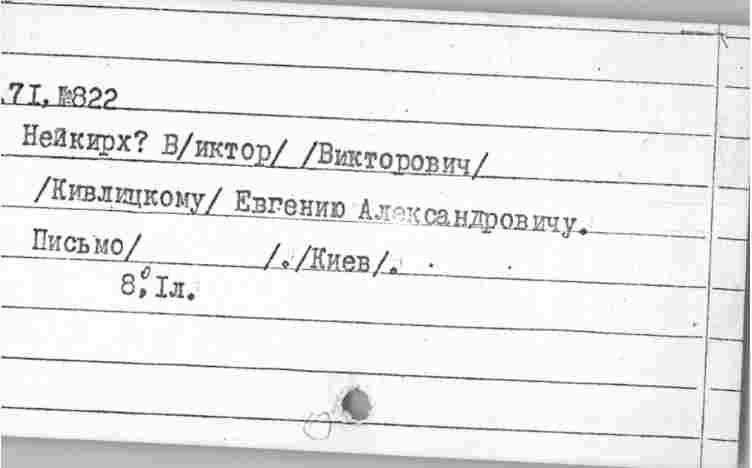 .71, №822
Нейкирх? В/иктор/ /Викторович/
/Кивлицкому/ Евгению Александровичу.
Письмо/ /./Киев/.
8°, 1л.